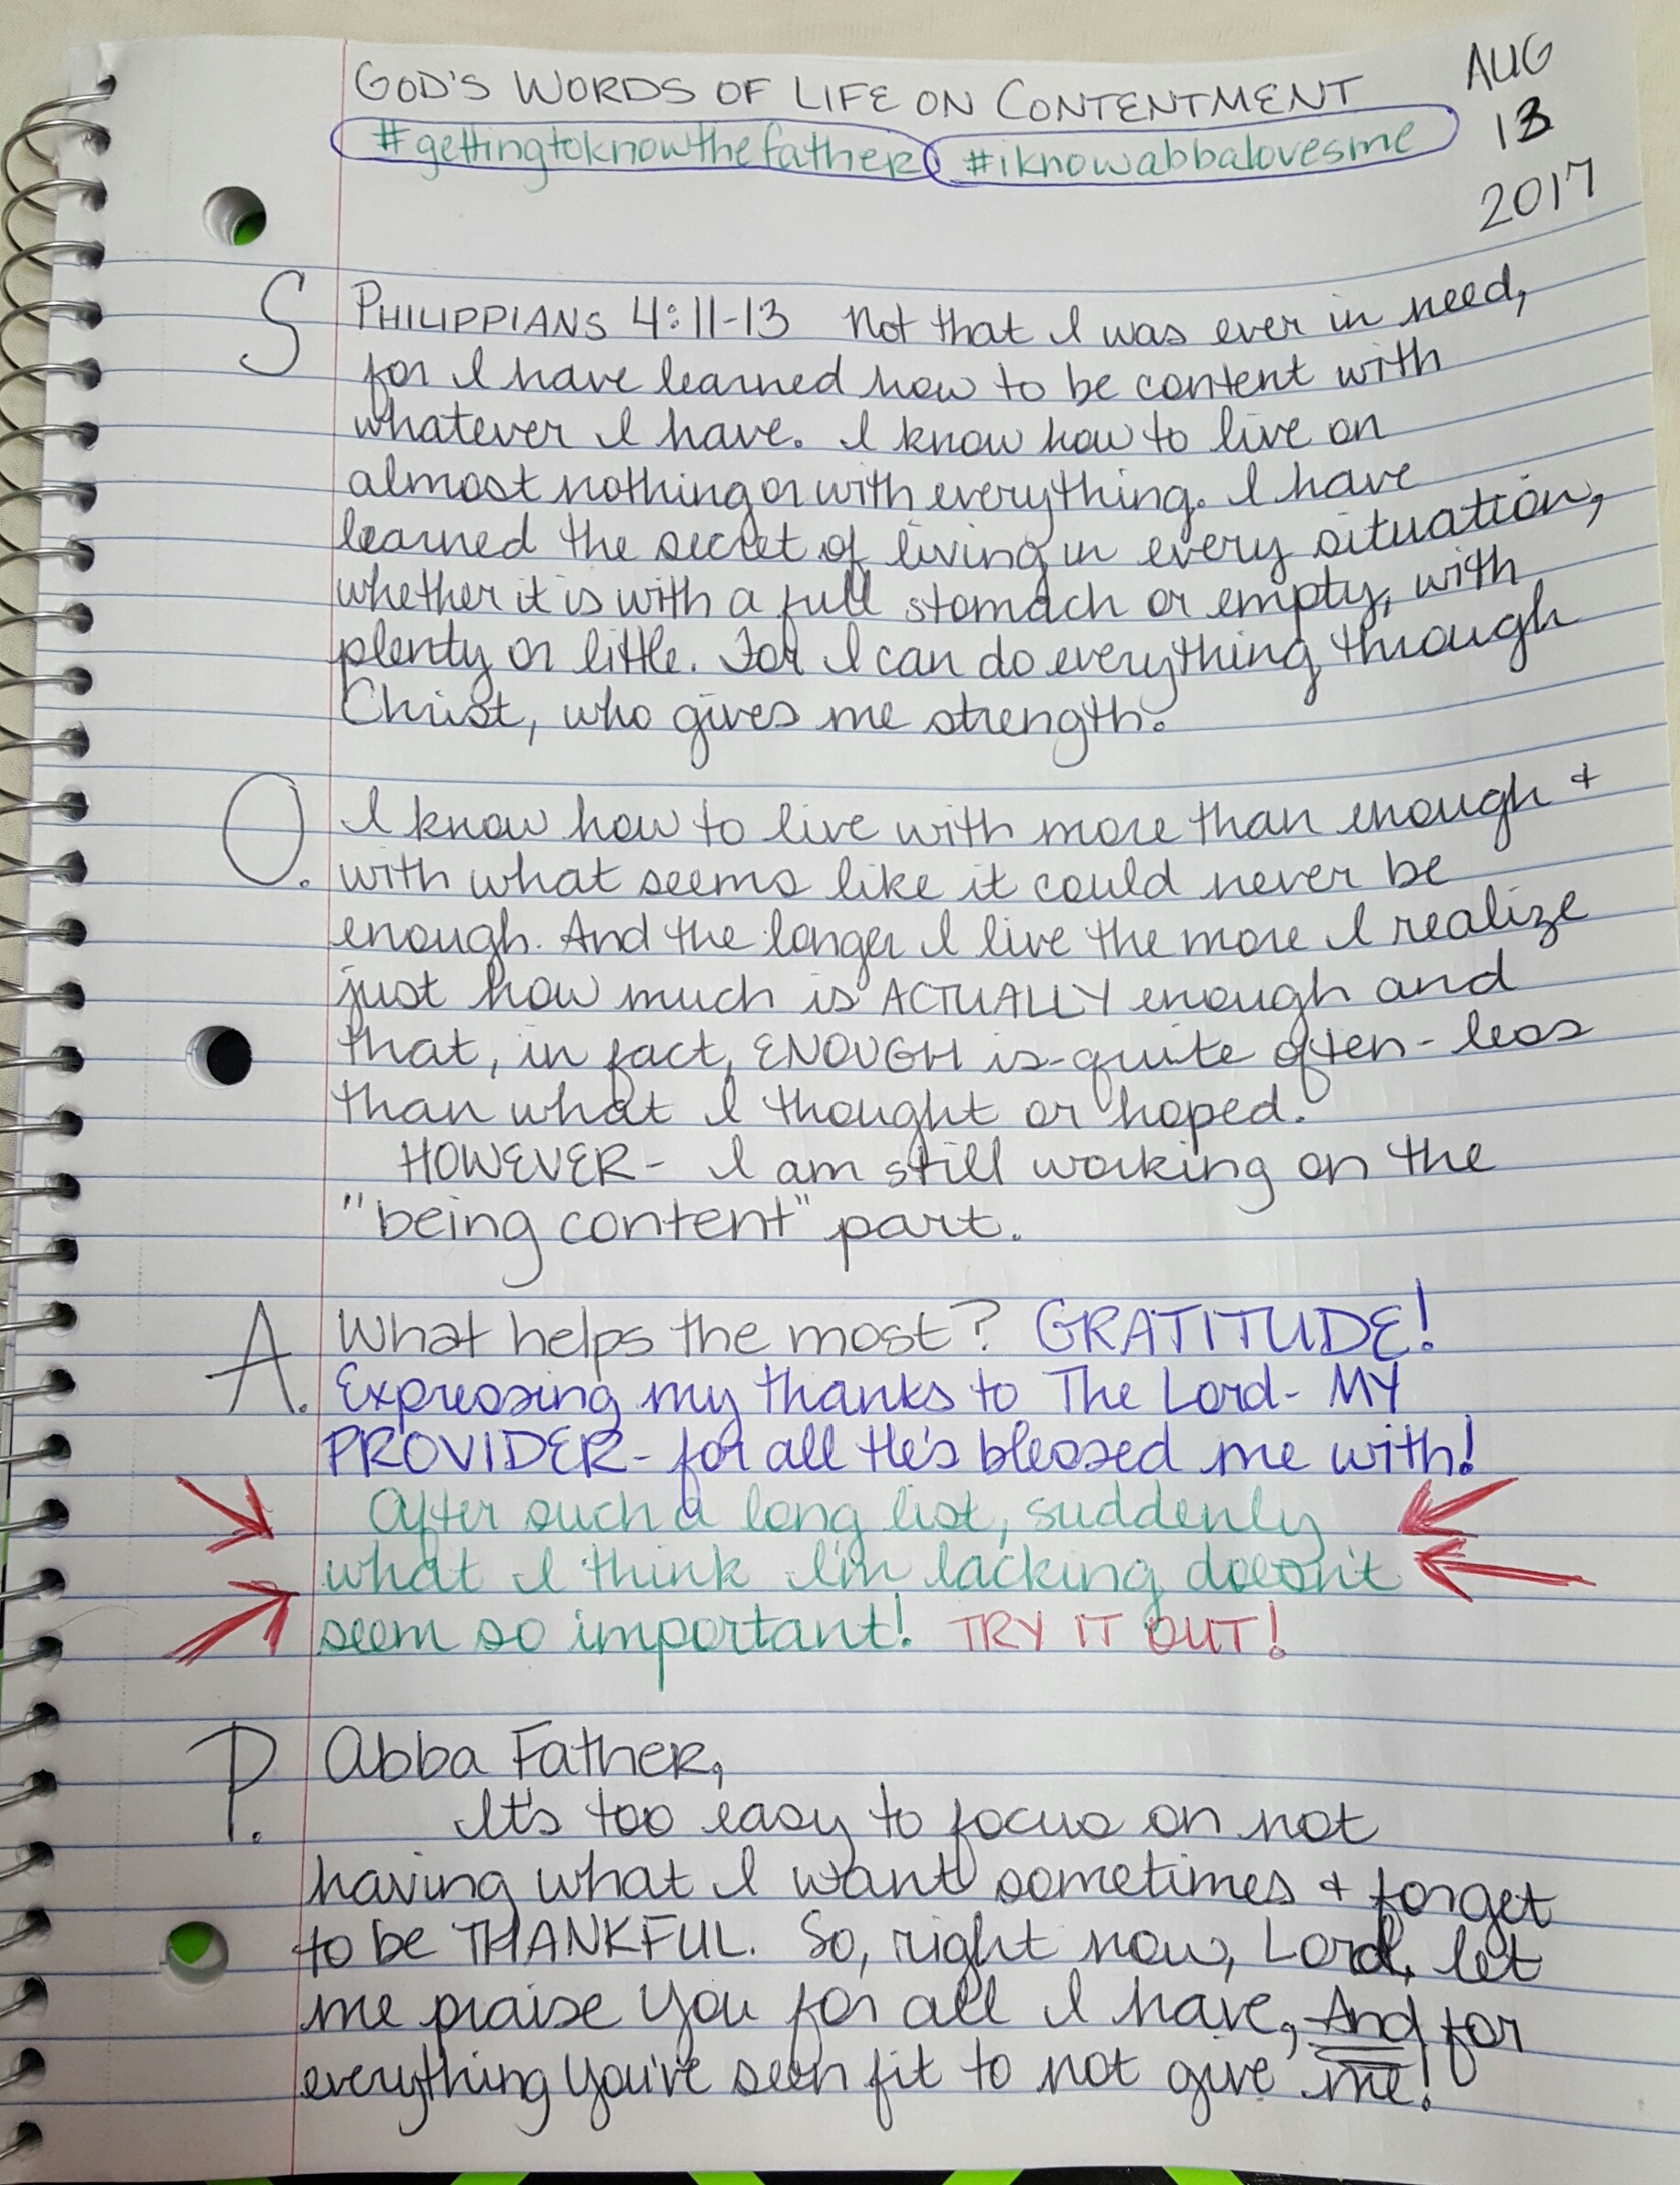 GOD'S WORDS OF LIFE ON CONTENTMENT
#gettingtoknowthefather #iknowabbalovesme
AUG
13
2017
S PHILIPPIANS 4:11-13 Not that I was ever in need,
for I have learned how to be content with
whatever I have. I know how to live on
almost nothing or with everything. I have
learned the secret of living in every situation,
whether it is with a full stomach or empty, with
plenty or little. For I can do everything through
Christ, who gives me strength.
O. I know how to live with more than enough +
with what seems like it could never be
enough. And the longer I live the more I realize
just how much is ACTUALLY enough and
that, in fact, ENOUGH is-quite often-less
than what I thought or hoped.
HOWEVER- I am still working on the
"being content" part.
A. What helps the most? GRATITUDE!
Expressing my thanks to The Lord- MY
PROVIDER- for all He's blessed me with!
After such a long list, suddenly
what I think I'm lacking doesn't
seem so important! TRY IT OUT!
P. Abba Father,
It's too easy to focus on not
having what I want sometimes + forget
to be THANKFUL. So, right now, Lord, let
me praise You for all I have, And for
everything You've seen fit to not give me!